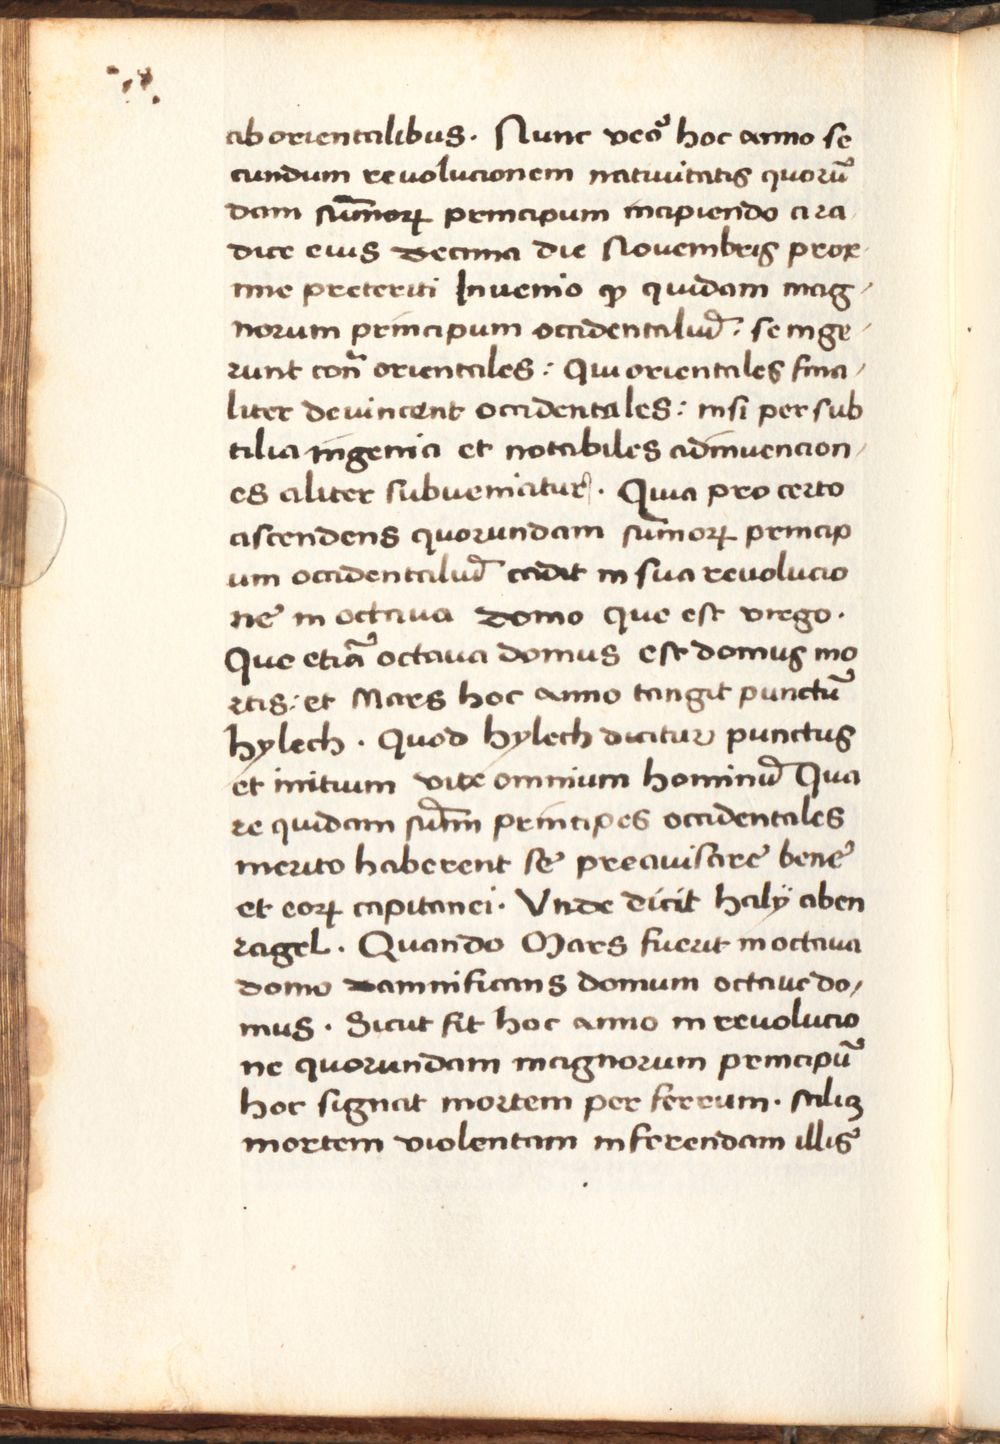 ab orientalibus. Nunc veo᷒ hoc anno se
cundum reuolucionem natiuitatis quorū
dam sūmoꝝ principum incipiendo a ra
dice eius decima die Nouembris prox-
ime preteriti Inuenio ꝙ quidam mag-
norum principum occidentaliū: se inge-
runt cont̄ orientales: Qui orientales fina-
liter deuincent occidentales: nisi per sub
tilia ingenia et notabiles adinuencion-
es aliter subueniatur. Quia pro certo
ascendens quorundam sūmoꝝ princip
um occidentaliū cadit in sua reuolucio
ne in octaua domo que est virgo.
Que etiā octaua domus est domus mo
rtis: et Mars hoc anno tangit punctū
hylech. Quod hylech dicitur punctus
et initium vite omnium hominū Qua
re quidam sūmi principes occidentales
merito haberent se preauisare bene
et eoꝝ capitanei. Vnde dicit halÿ aben
ragel. Quando Mars fuerit in octaua
domo damnificans domum octaue do-
mus. Sicut fit hoc anno in reuolucio
ne quorundam magnorum principū
hoc significat mortem per ferrum. scilicꝫ
mortem violentam inferendam illis